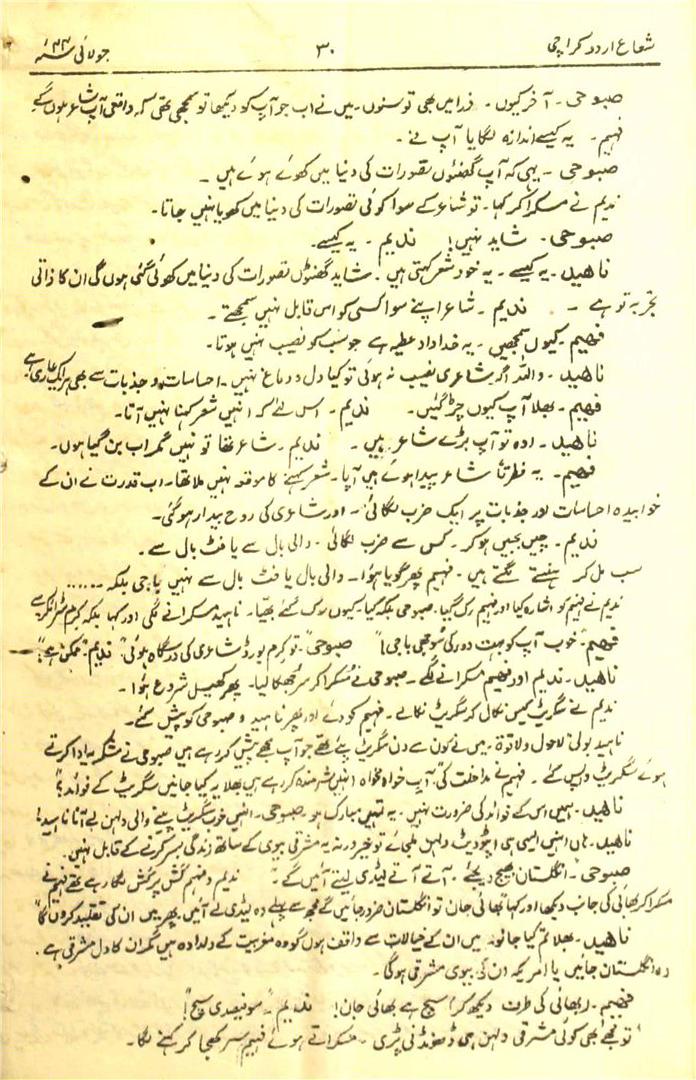 شعاع اردو کراچی ۳۰ جولائی ۴۴ء
صبوحی۔ آخر کیوں۔ ذرا میں بھی تو سنوں۔ میں نے اب جو آپ کو دیکھا تو سمجھی تھی کہ واقعی آپ شاعر ہوں گے
فہیم۔ یہ کیسے اندازہ لگایا آپ نے۔
صبوحی۔ یہی کہ آپ گھنٹوں تصورات کی دنیا میں کھوئے ہوئے ہیں۔
ندیم نے مسکرا کر کہا۔ تو شاعر کے سوا کوئی تصورات کی دنیا میں کھویا نہیں جاتا۔
صبوحی۔ شاید نہیں! ندیم۔ یہ کیسے۔
ناھید۔ یہ کیسے۔ یہ خود شعر کہتی ہیں۔ شاید گھنٹوں تصورات کی دنیا میں کھوئی گئی ہوں گی ان کا ذاتی
تجربہ تو ہے۔ ندیم۔ شاعر اپنے سوا کسی کو اس قابل نہیں سمجھتے۔
فہیم۔ کیوں سمجھیں۔ یہ خداداد عطیہ ہے جو سب کو نصیب نہیں ہوتا۔
ناھید۔ واللہ اگر شاعری نصیب نہ ہوئی تو کیا دل و دماغ نہیں۔ احساسات و جذبات سے بھی ہر ایک عاری ہے۔
فہیم۔ بھلا آپ کیوں چڑ گئیں۔ ندیم۔ اس لئے کہ انہیں شعر کہنا نہیں آتا۔
ناھید۔ اوہ تو آپ بڑے شاعر ہیں۔ ندیم۔ شاعر تھا تو نہیں مگر اب بن گیا ہوں۔
فہیم۔ یہ فطرتاً شاعر پیدا ہوئے ہیں آپا۔ شعر کہنے کا موقعہ نہیں ملا تھا۔ اب قدرت نے ان کے
خوابیدہ احساسات اور جذبات پر ایک ضرب لگائی۔ اور شاعری کی روح بیدار ہو گئی۔
ندیم۔ چیں بجبیں ہو کر۔ کس سے ضرب لگائی۔ والی بال سے یا فٹ بال سے۔
سب مل کر ہنسنے لگتے ہیں۔ فہیم پھر گویا ہوا۔ والی بال یا فٹ بال سے نہیں باجی بلکہ ......
ندیم نے فہیم کو اشارہ کیا اور فہیم رک گیا۔ صبوحی بلکہ کیا۔ کیوں رک گئے بھیا۔ ناہید مسکرانے لگی اور کہا بلکہ کیرم
فہیم "خوب آپ کو بہت دور کی سوجھی باجی!" صبوحی "تو کرم بورڈ شاعری کی درسگاہ ہوئی" ندیم "ممکن ہے"
ناھید۔ ندیم اور فہیم مسکرانے لگے۔ صبوحی نے مسکرا کر سر جھکا لیا۔ پھر کھیل شروع ہوا۔
ندیم نے سگریٹ کیس نکال کر سگریٹ نکالے۔ فہیم کو دئے اور پھر ناہید و صبوحی کو پیش کئے۔
ناہید بولی لاحول ولا قوۃ۔ میں نے کون سے دن سگریٹ پئے تھے جو آپ مجھے پیش کر رہے ہیں صبوحی نے شکریہ ادا کرتے
ہوئے سگریٹ واپس کئے۔ فہیم نے مداخلت کی۔ آپ خواہ مخواہ انہیں شرمندہ کر رہے ہیں بھلا یہ کیا جانیں سگریٹ کے فوائد؟"
ناھید۔ ہمیں اس کے فوائد کی ضرورت نہیں۔ یہ تمہیں مبارک ہو۔ صبوحی۔ انہیں خود سگریٹ پینے والی دلہن لے آنا ناہید!
ناھید۔ ہاں انہیں ایسی ہی اپٹوڈیٹ دلہن ملے تو خیر ورنہ یہ مشرقی بیوی کے ساتھ زندگی بسر کرنے کے قابل نہیں۔
صبوحی "انگلستان بھیج دیجئے۔ آتے آتے لیڈی لیتے آئیں گے" ندیم و فہیم کش پر کش لگا رہے تھے فہیم نے
مسکرا کر بھائی کی جانب دیکھا اور کہا بھائی جان تو انگلستان ضرور جائیں گے مجھ سے پہلے وہ لیڈی لے آئیں پھر میں ان کی تقلید کروں گا"
ناھید۔ بھلا تم کیا جانو۔ میں ان کے خیالات سے واقف ہوں گو وہ مغربیت کے دلدادہ ہیں مگر ان کا دل مشرقی ہے۔
وہ انگلستان جائیں یا امریکہ ان کی بیوی مشرقی ہوگی۔
فہیم۔ (بھائی کی طرف دیکھ کر) سچ ہے بھائی جان! ندیم "سو فیصدی سچ!
"تو مجھے بھی کوئی مشرقی دلہن ہی ڈھونڈنی پڑی۔ مسکراتے ہوئے فہیم سر کھجا کر کہنے لگا۔